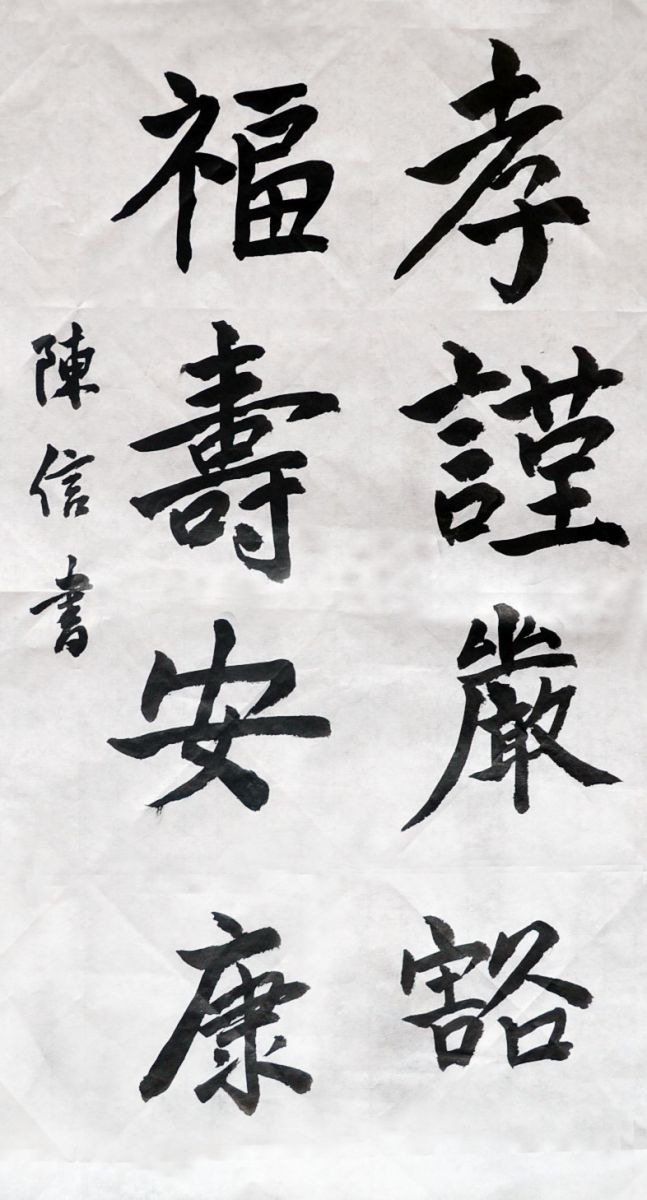 孝謹嚴豁
福壽安康
陳信書